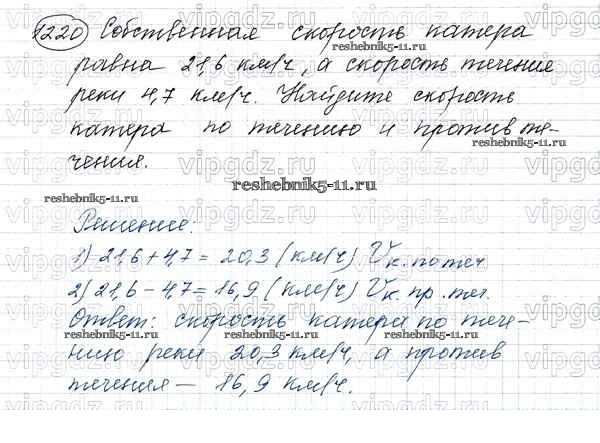 1220 Собственная скорость катера
reshebnik5-11.ru
равна 21,6 км/ч, а скорость течения
реки 4,7 км/ч. Найдите скорость
катера по течению и против те-
чения.
reshebnik5-11.ru
Решение.
1) 21,6 + 4,7 = 20,3 (км/ч) Vк. по теч
2) 21,6 - 4,7 = 16,9 (км/ч) Vк. пр. теч.
Ответ: скорость катера по тече-
reshebnik5-11.ru
нию реки 20,3 км/ч, а против
течения — 16,9 км/ч.